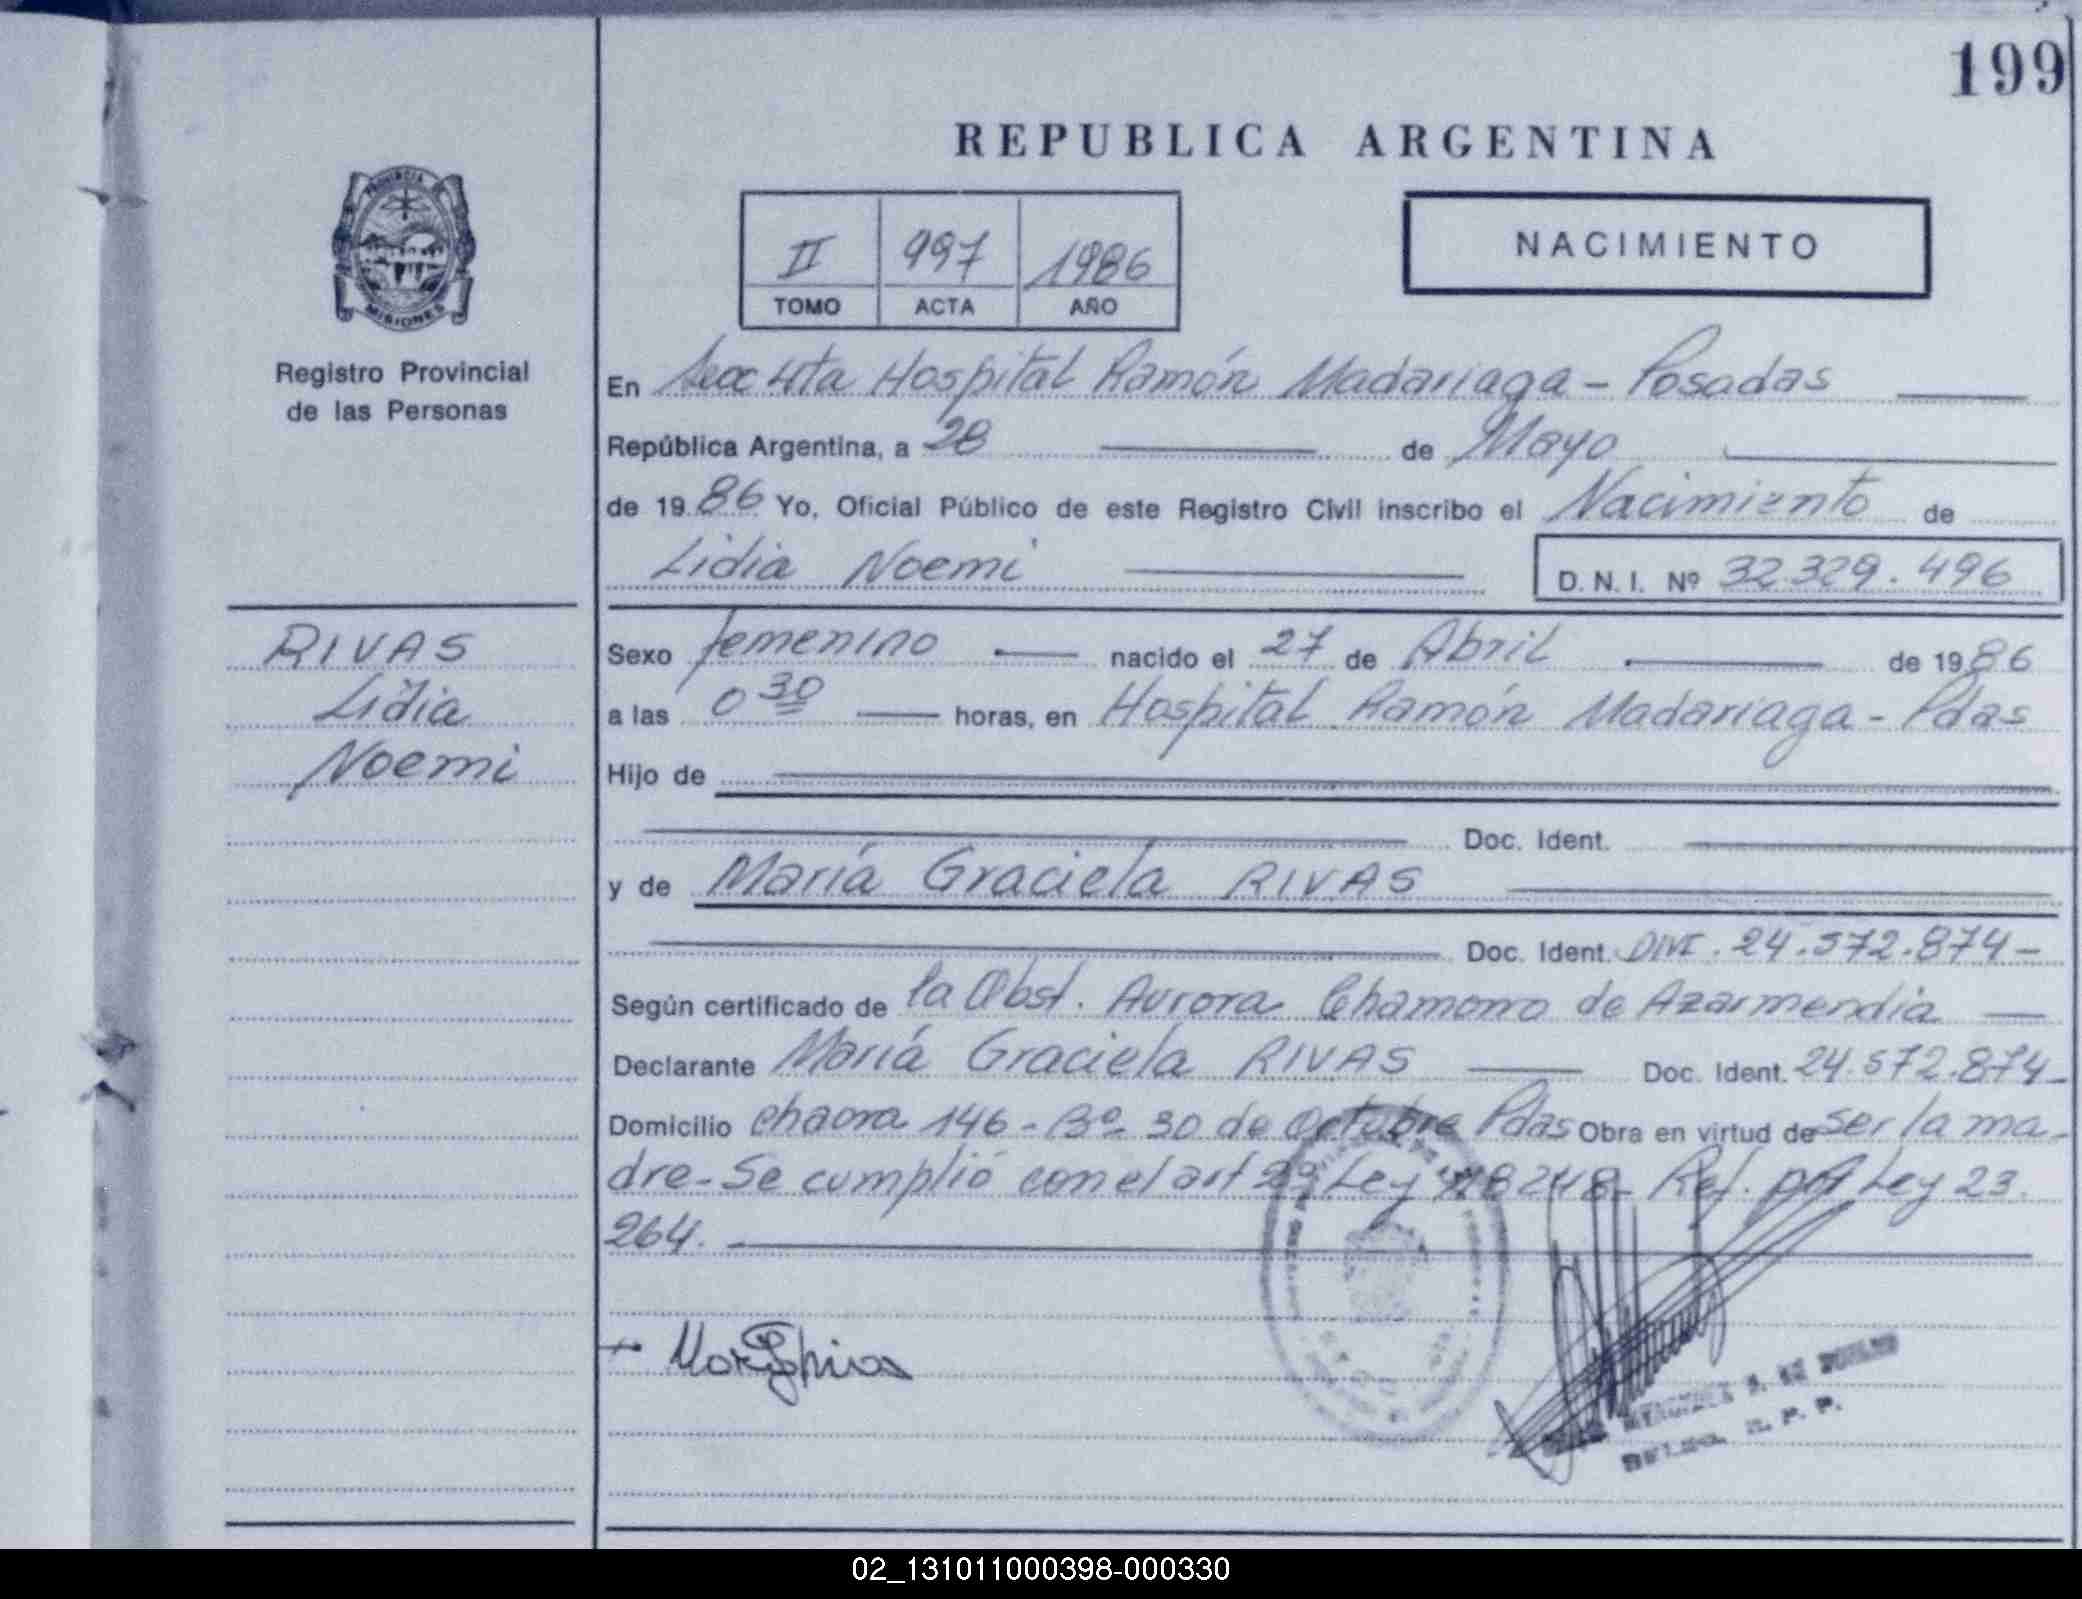 199
REPUBLICA ARGENTINA
PROVINCIA
MISIONES
II 997 1986
TOMO ACTA AÑO
NACIMIENTO
Registro Provincial
de las Personas
En Secc 4ta Hospital Ramón Madariaga - Posadas
República Argentina, a 28 de Mayo
de 1986 Yo, Oficial Público de este Registro Civil inscribo el Nacimiento de
Lidia Noemi D.N.I. Nº 32.329.496
RIVAS
Lidia
Noemi
Sexo femenino nacido el 27 de Abril de 1986
a las 0 30 horas, en Hospital Ramón Madariaga - Pdas
Hijo de
Doc. Ident.
y de María Graciela RIVAS
Doc. Ident. DNI. 24.572.874-
Según certificado de la Obst. Aurora Chamorro de Azarmendia
Declarante María Graciela RIVAS Doc. Ident. 24.572.874-
Domicilio Chacra 146 - Bº 30 de Octubre Pdas Obra en virtud de ser la ma-
dre - Se cumplió con el art 29 Ley 18248 - Ref. por Ley 23.
264.
02_131011000398-000330